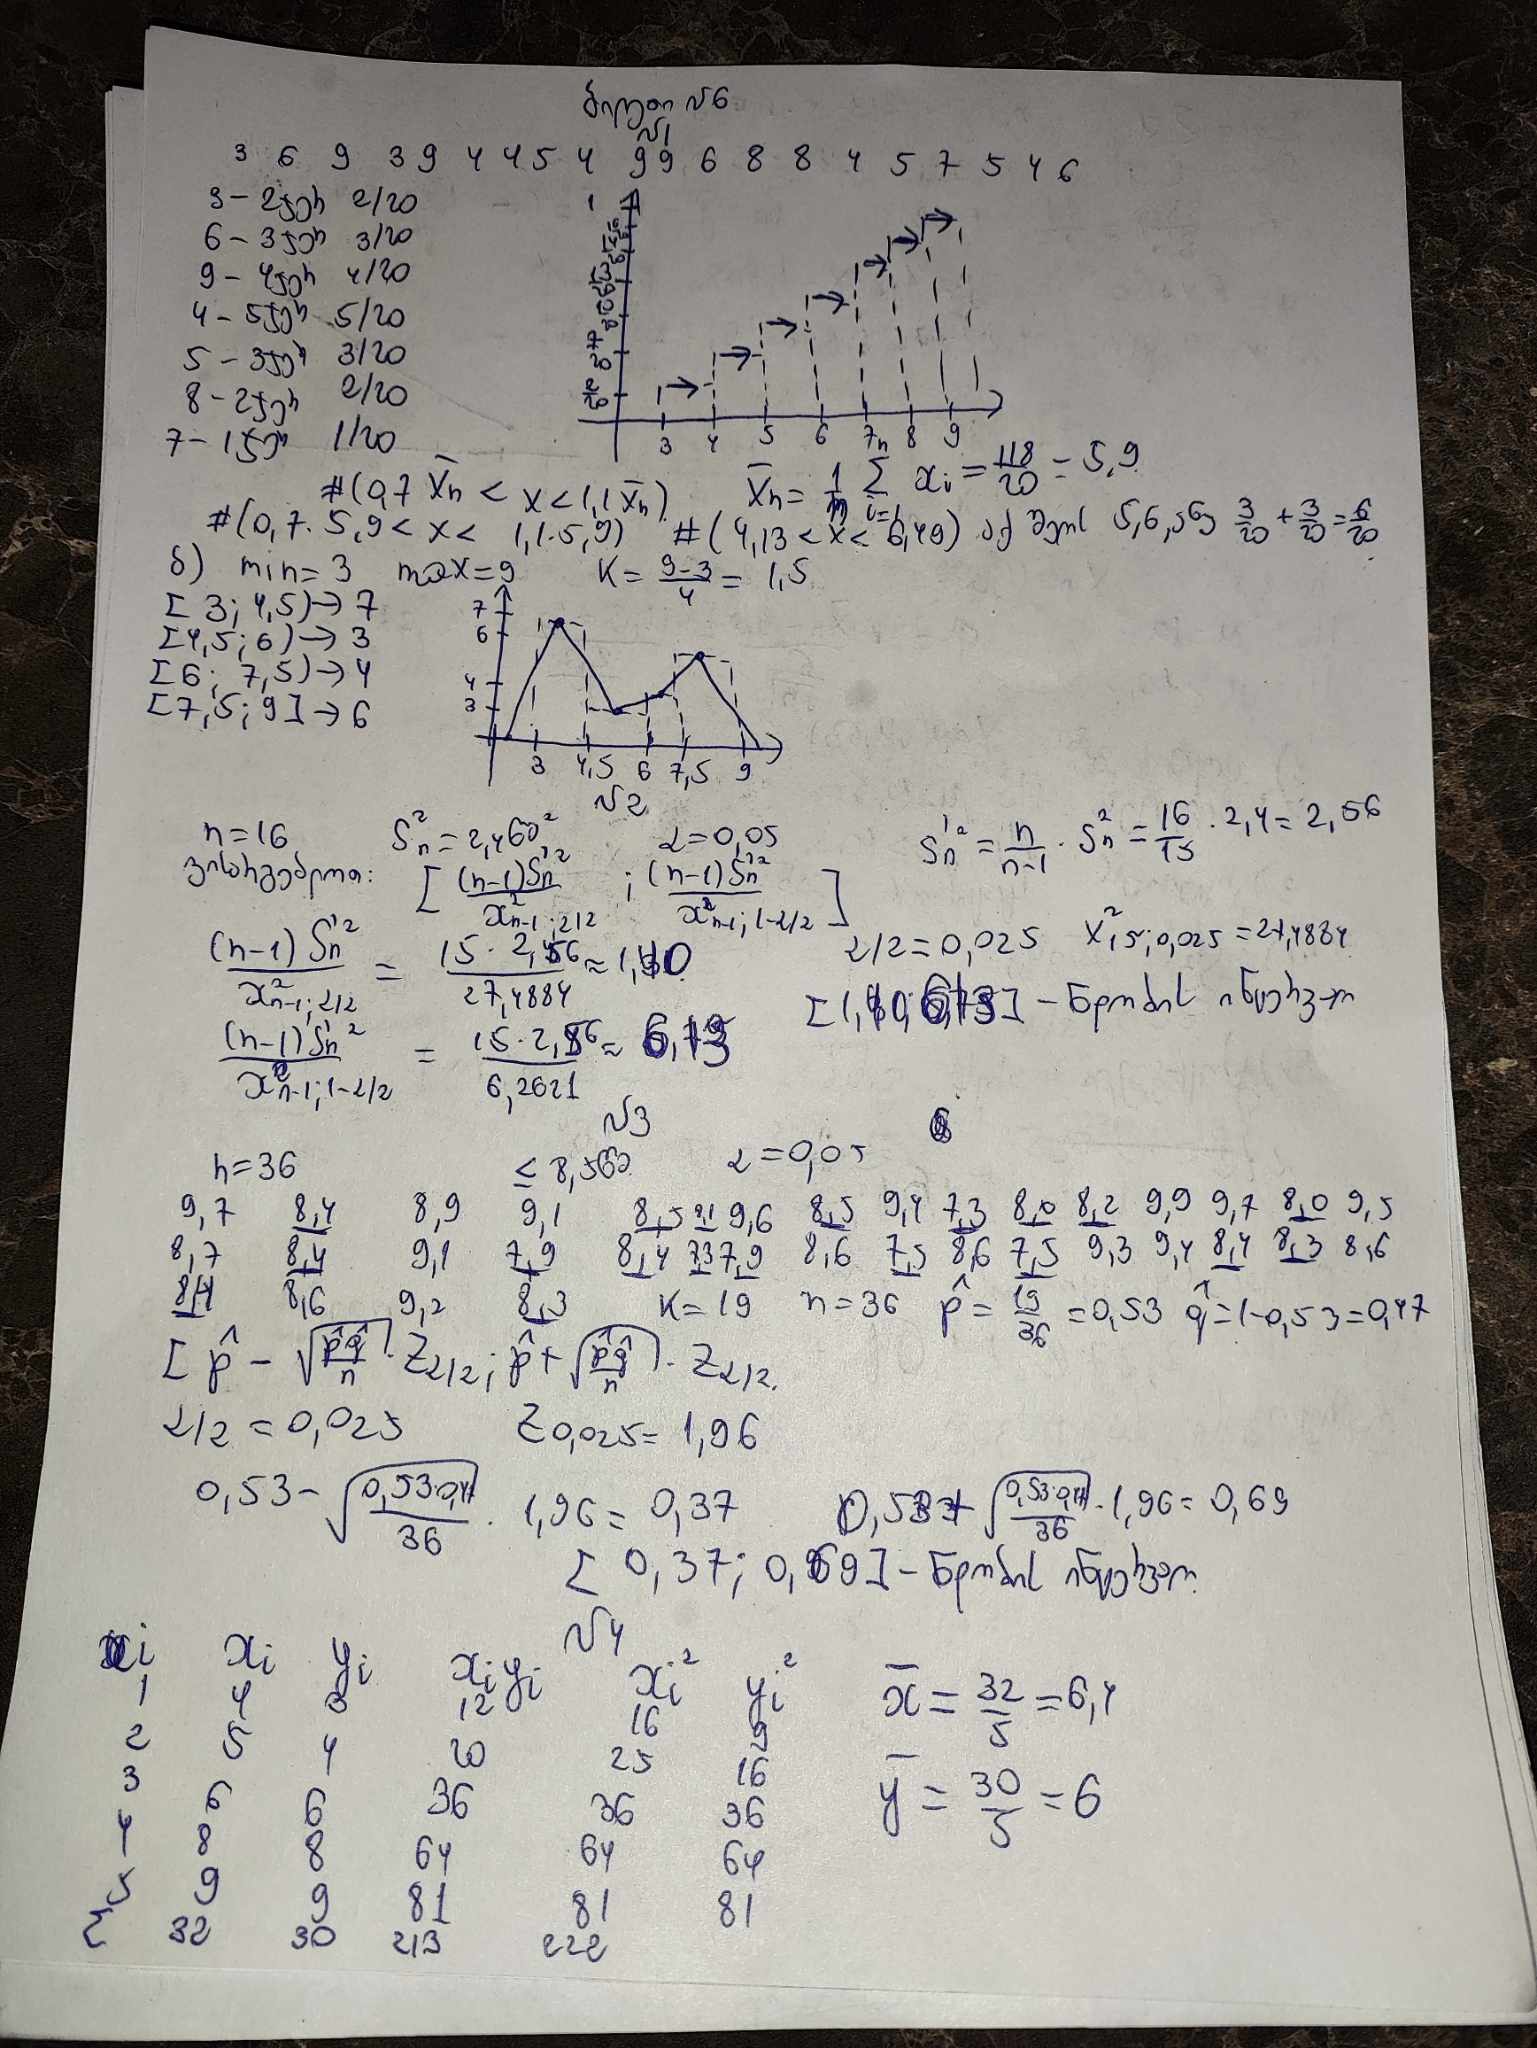 ბილეთი №6
№1
3 6 9 3 9 4 4 5 4 9 9 6 8 8 4 5 7 5 4 6
3 - 2ჯერ 2/20
6 - 3ჯერ 3/20
9 - 4ჯერ 4/20
4 - 5ჯერ 5/20
5 - 3ჯერ 3/20
8 - 2ჯერ 2/20
7 - 1ჯერ 1/20
1
3 4 5 6 7 8 9
#(0,7 X̄n < x < 1,1 X̄n) X̄n = 1/n Σ xi = 118/20 = 5,9
#(0,7·5,9 < x < 1,1·5,9) #(4,13 < x < 6,49) აქ შედის 5,6, ანუ 3/20 + 3/20 = 6/20
ბ) min = 3 max = 9 K = 9-3/4 = 1,5
[3; 4,5) → 7
[4,5; 6) → 3
[6; 7,5) → 4
[7,5; 9] → 6
7
6
4
3
3 4,5 6 7,5 9
№2
n = 16 Sn² = 2,4 α = 0,05 S'n² = n/n-1 · Sn² = 16/15 · 2,4 = 2,56
ვისარგებლოთ: [(n-1)S'n²/x²n-1; α/2 ; (n-1)S'n²/x²n-1; 1-α/2]
α/2 = 0,025 X²15; 0,025 = 27,4884
(n-1)S'n²/x²n-1; α/2 = 15·2,56/27,4884 ≈ 1,40
[1,40; 6,13] - ნდობის ინტერვალი
(n-1)S'n²/x²n-1; 1-α/2 = 15·2,56/6,2621 ≈ 6,13
№3
n = 36 ≤ 8,5 α = 0,05
9,7 8,4 8,9 9,1 8,5 9,1 9,6 8,5 9,4 7,3 8,0 8,2 9,9 9,7 8,0 9,5
8,7 8,4 9,1 7,9 8,4 7,3 7,9 8,6 7,5 8,6 7,5 9,3 9,4 8,4 8,3 8,6
8,4 8,6 9,2 8,3 K = 19 n = 36 p̂ = 19/36 = 0,53 q̂ = 1-0,53 = 0,47
[p̂ - √(p̂q̂/n) · Zα/2; p̂ + √(p̂q̂/n) · Zα/2.
α/2 = 0,025 Z0,025 = 1,96
0,53 - √(0,53·0,47/36) · 1,96 = 0,37 0,53 + √(0,53·0,47/36) · 1,96 = 0,69
[0,37; 0,69] - ნდობის ინტერვალი
№4
i xi yi xiyi xi² yi² x̄ = 32/5 = 6,4
1 4 3 12 16 9
2 5 4 20 25 16
3 6 6 36 36 36 ȳ = 30/5 = 6
4 8 8 64 64 64
5 9 9 81 81 81
Σ 32 30 213 222